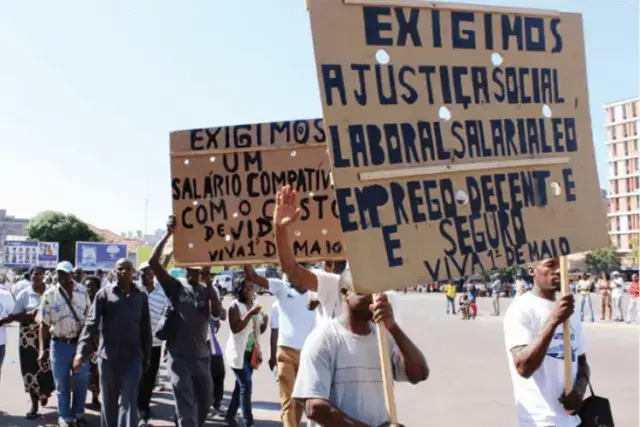 EXIGIMOS
A JUSTIÇA SOCIAL,
LABORAL, SALARIAL E O
EMPREGO DECENTE E
E SEGURO
VIVA 1º DE MAIO
EXIGIMOS
UM
SALÁRIO COMPATIV
COM O CUSTO
DE VIDA
VIVA 1º DE MAIO